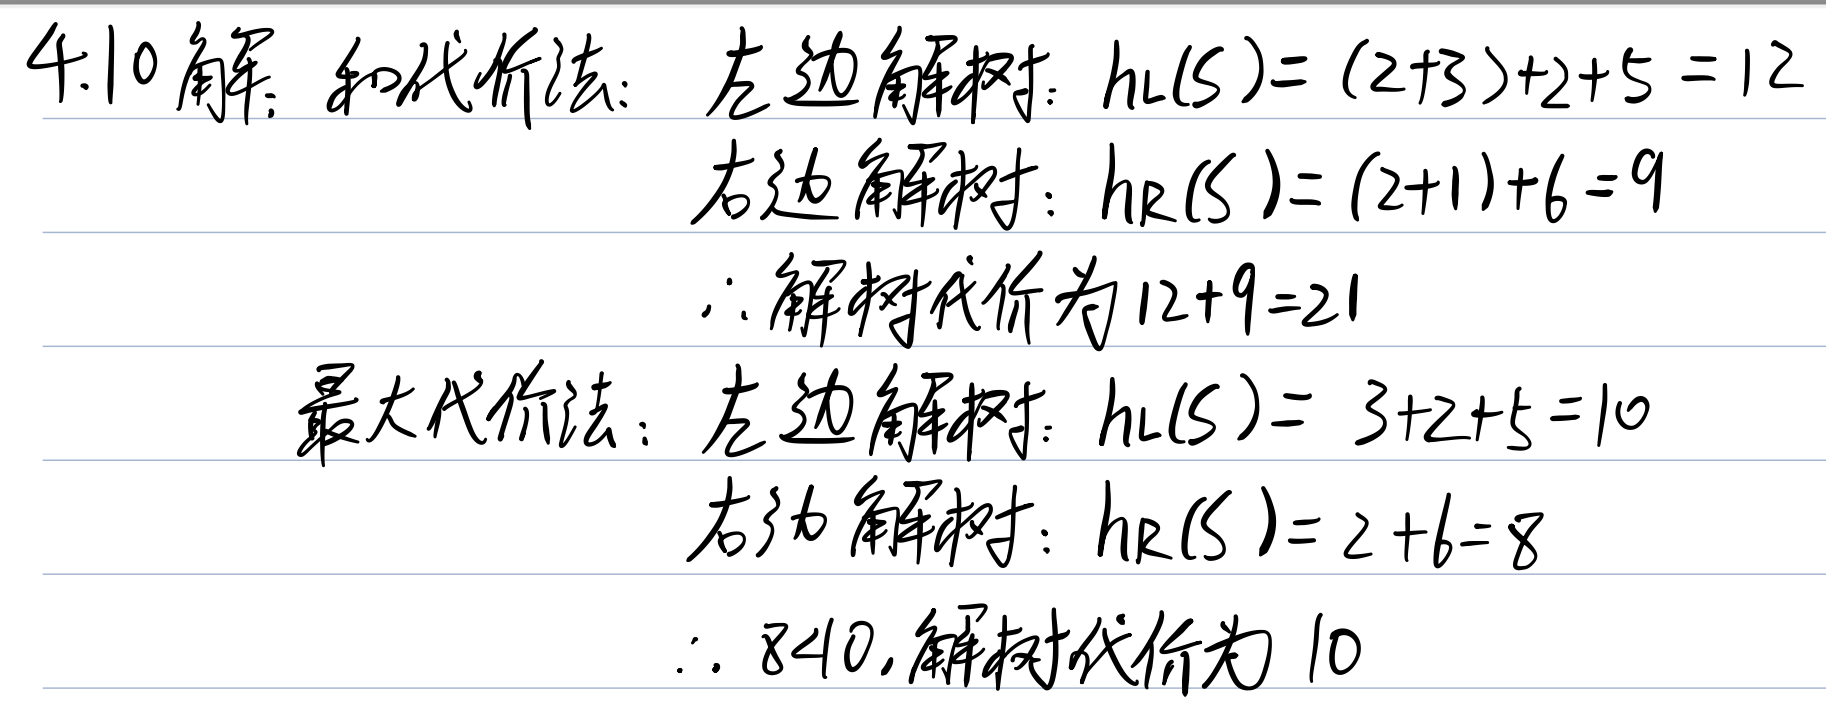 4.10 解: 和代价法: 左边解树: hL(S)= (2+3)+2+5 = 12
右边解树: hR(S)= (2+1)+6=9
∴解树代价为12+9=21
最大代价法: 左边解树: hL(S)= 3+2+5=10
右边解树: hR(S)= 2+6=8
∴ 8<10,解树代价为 10